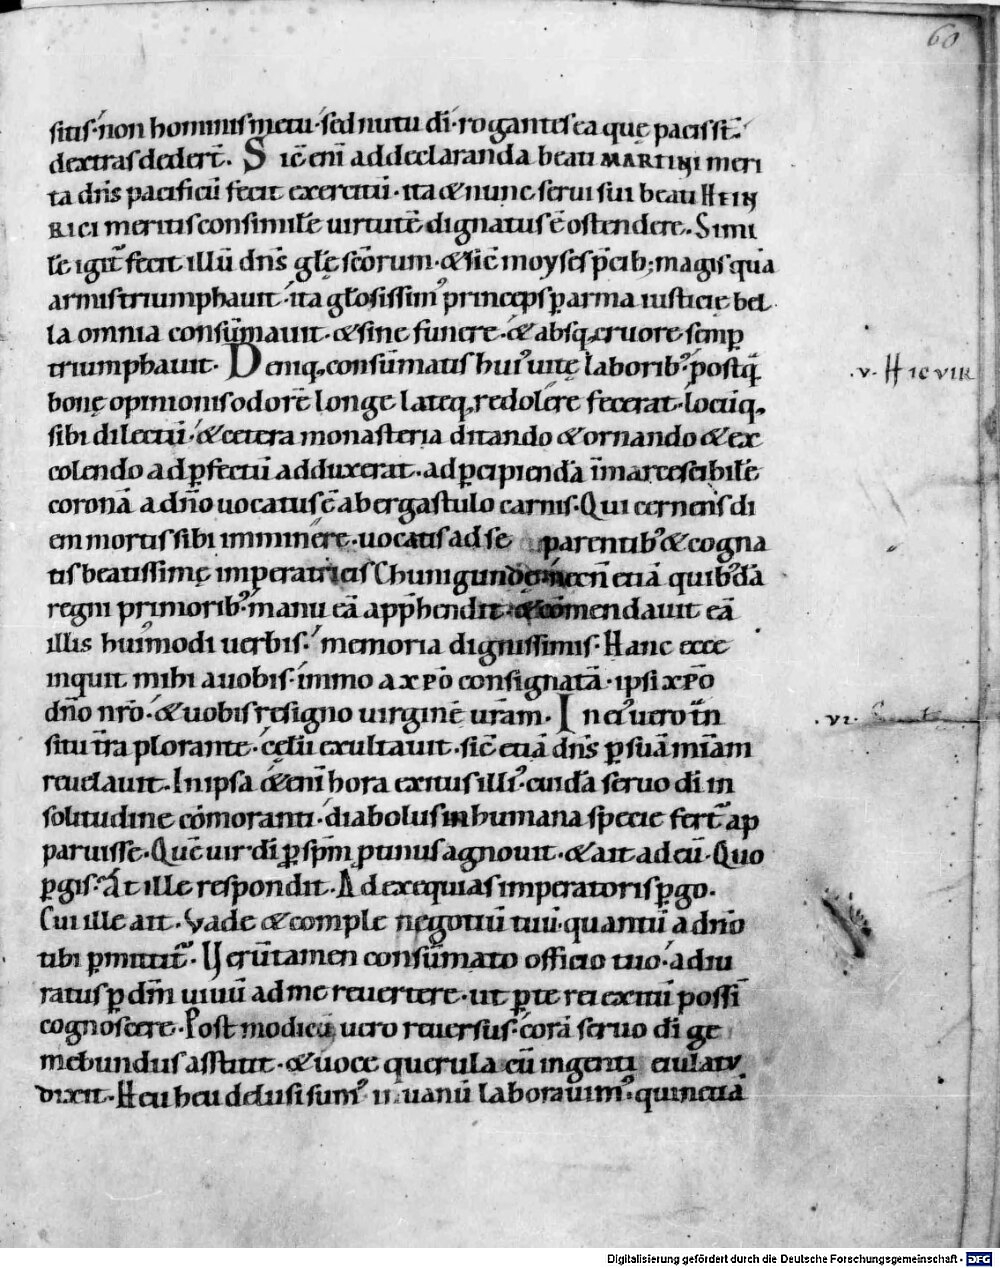 60
sitis· non hominis metu· sed nutu di· rogantes ea quę pacis st̄
dextras dedert̄. Sic eni ad declaranda beati MARTINI meri
ta dn̄s pacificū fecit exercitū· ita & nunc serui sui beati HEIN
RICI meritis consimile uirtutē dignatus ē ostendere. Simi
le igit̄ fecit illū dn̄s glę scōrum· & sic̄ moyses p̄cib; magis quā
armis triumphauit· ita glosissim' princeps p arma iusticię bel
la omnia consūmauit· & sine funere· & absq, cruore semp
triumphauit. Deniq, consūmatis hui' uitę laborib'· postq̄
bonę opinionis odorē longe lateq, redolere fecerat· locūq,
sibi dilectū· & cetera monasteria ditando & ornando & ex
colendo ad pfectū adduxerat· ad pcipiendā īmarcescibilē
coronā a dn̄o uocatus ē ab ergastulo carnis. Qui cernens di
em mortis sibi imminere· uocatis ad se parentib' & cogna
tis beatissimę imperatricis Chunigundę necn̄ etiā quib'dā
regni primorib'· manu eā app̄hendit· & cōmendauit eā
illis hui'modi uerbis· memoria dignissimis. Hanc ecce
inquit mihi a uobis· immo a xpō consignatā· ipsi xpō
dn̄o nr̄o· & uobis resigno uirginē urām. In cui' uero trān
situ trā plorante· cęlū exultauit· sic̄ etiā dn̄s p suā mīam
reuelauit. In ipsa & eni hora exitus illi' cuidā seruo di in
solitudine cōmoranti· diabolus in humana specie fert̄ ap
paruisse. Quē uir di p spm̄ ptinus agnouit· & ait ad eū. Quo
pgis. At ille respondit. Ad exequias imperatoris pgo.
Cui ille ait. Vade & comple negotiū tuū· quantū a dn̄o
tibi pmittit̄. Verūtamen consūmato officio tuo· adiu
ratus p dm̄ uiuū ad me reuertere· ut p te rei exitū possī
cognoscere. Post modicū uero reuersus· corā seruo di ge
mebundus astitit· & uoce querula cū ingenti eiulatu
dixit. Heu heu delusi sum'· in uanū laborauim'· quin etiā
.v. HIC VIR
.vi.
Digitalisierung gefördert durch die Deutsche Forschungsgemeinschaft - DFG